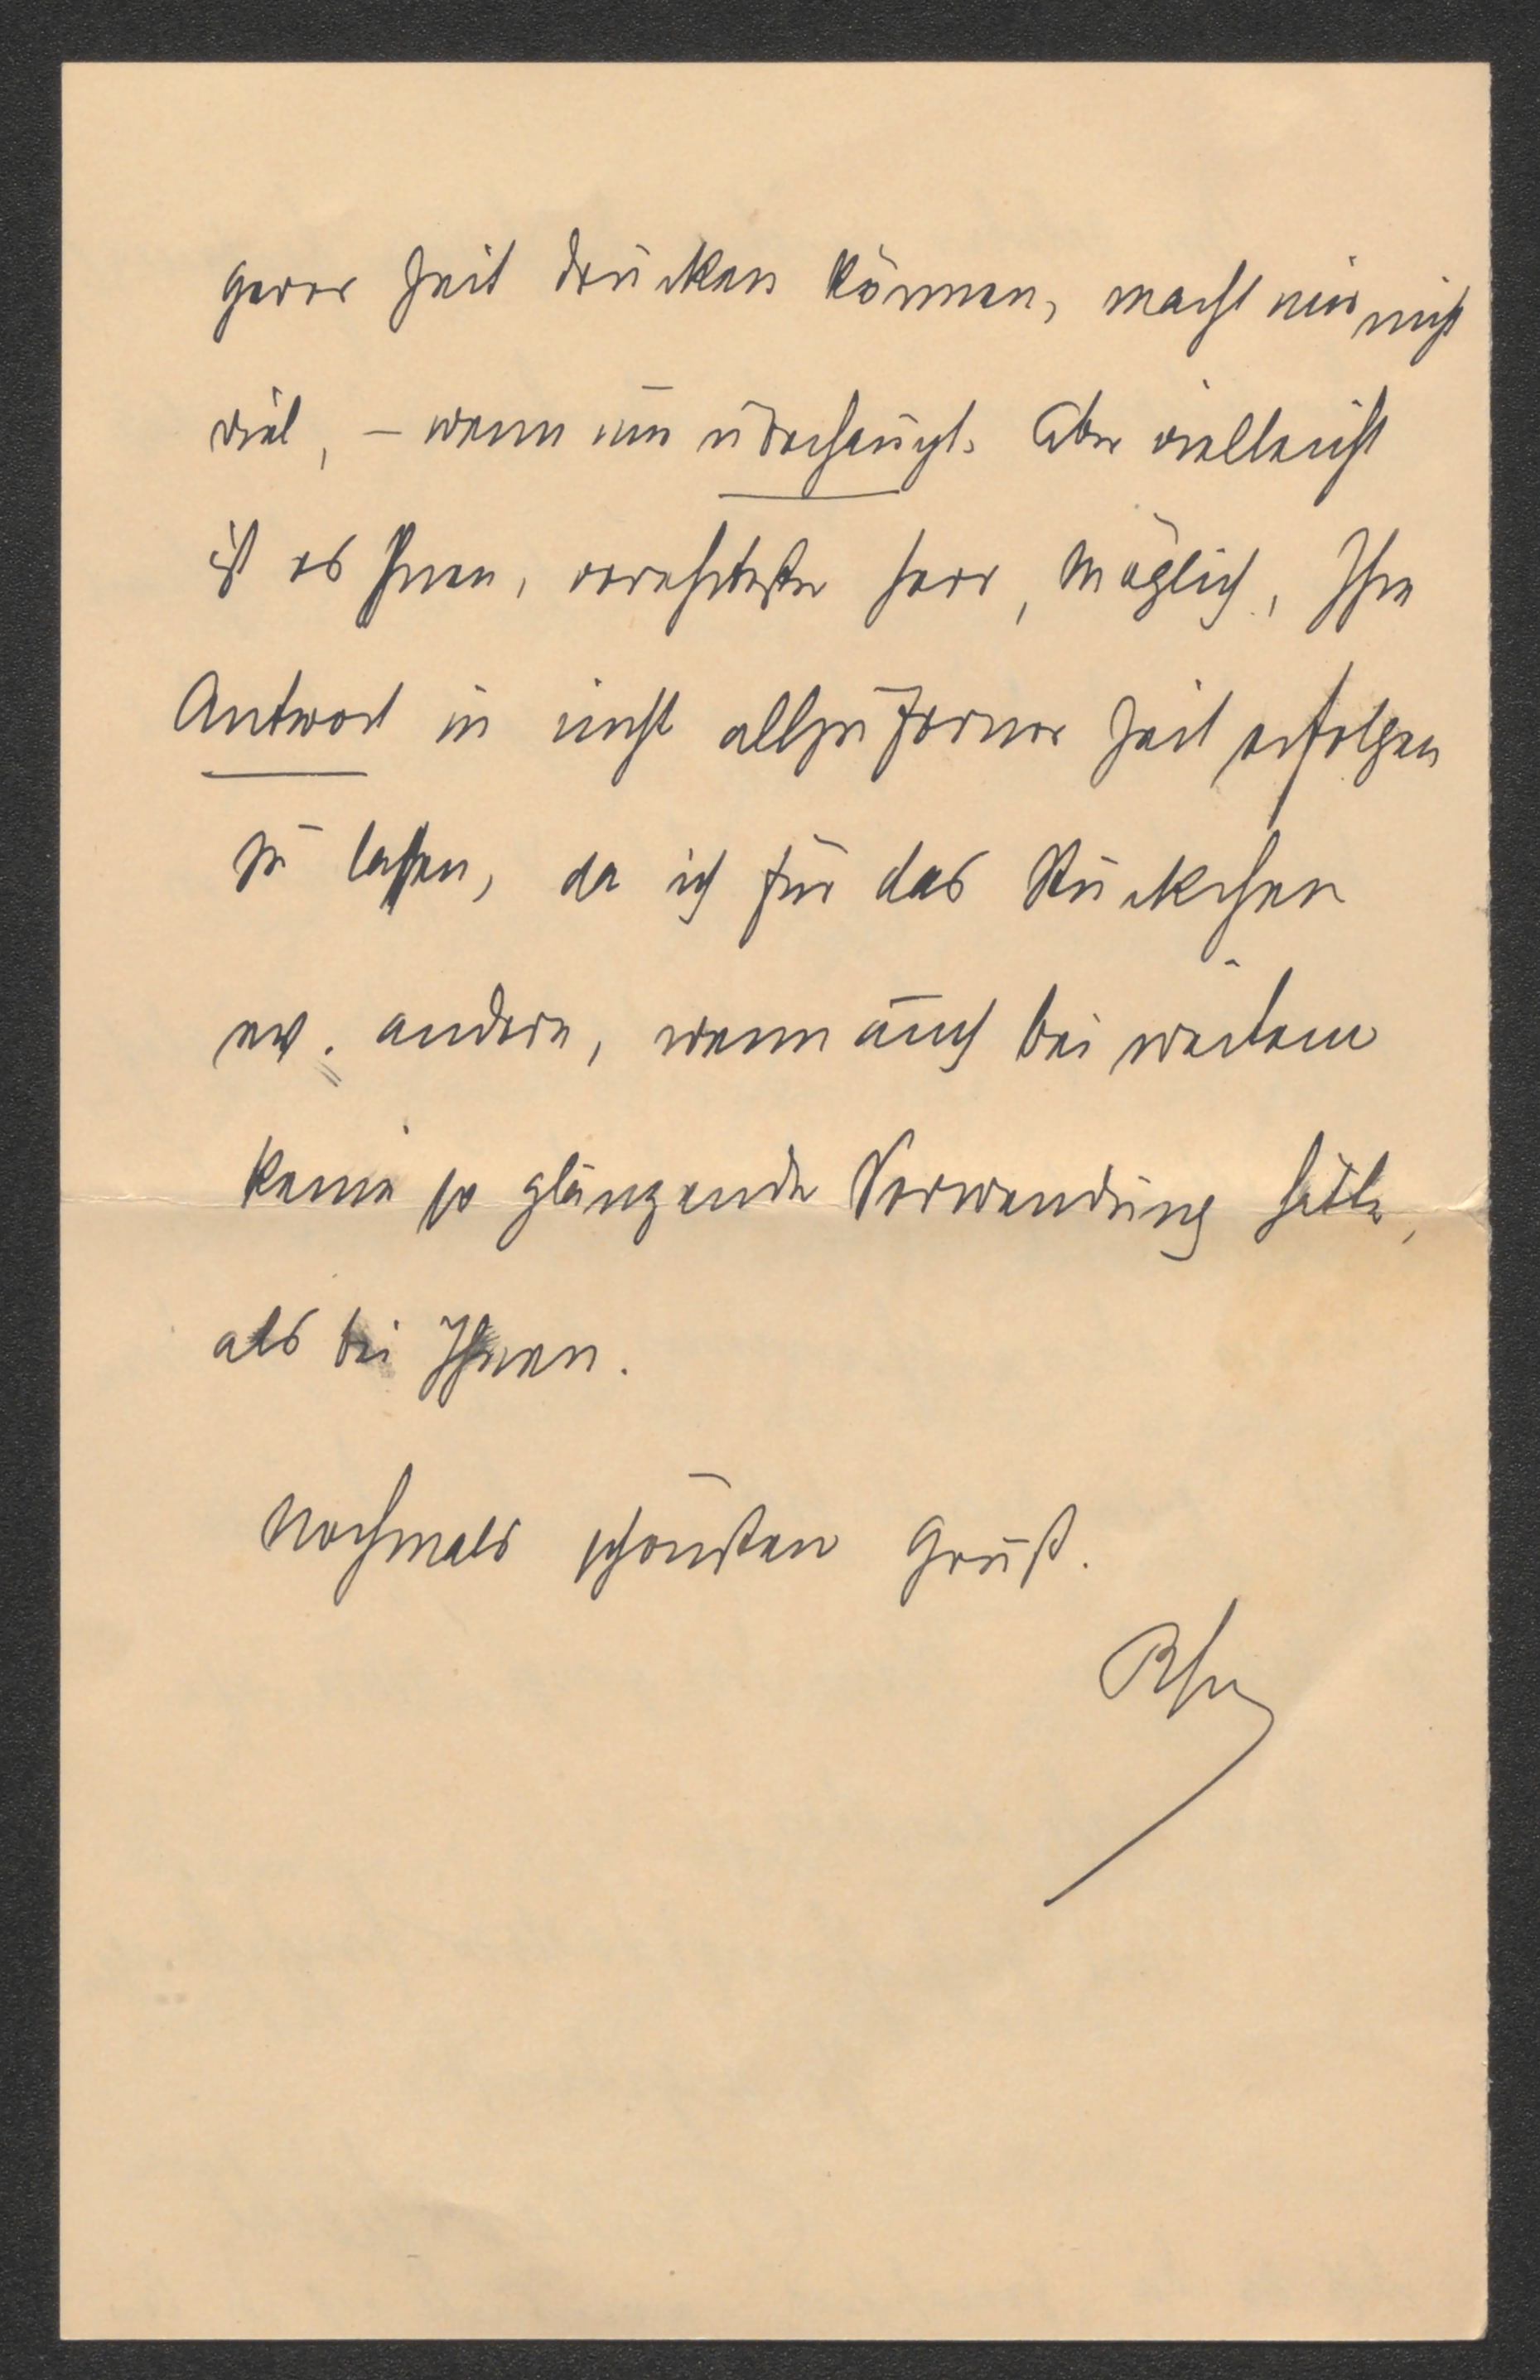 gerer Zeit drucken können, macht mir nicht
viel, – wenn nur überhaupt. Aber vielleicht
ist es Ihnen, verehrtester Herr, möglich, Ihre
Antwort in nicht allzuferner Zeit erfolgen
zu lassen, da ich für das Stückchen
ev. andere, wenn auch bei weitem
keine so glänzende Verwendung hätte,
als bei Ihnen.
Nochmals schönsten Gruß.